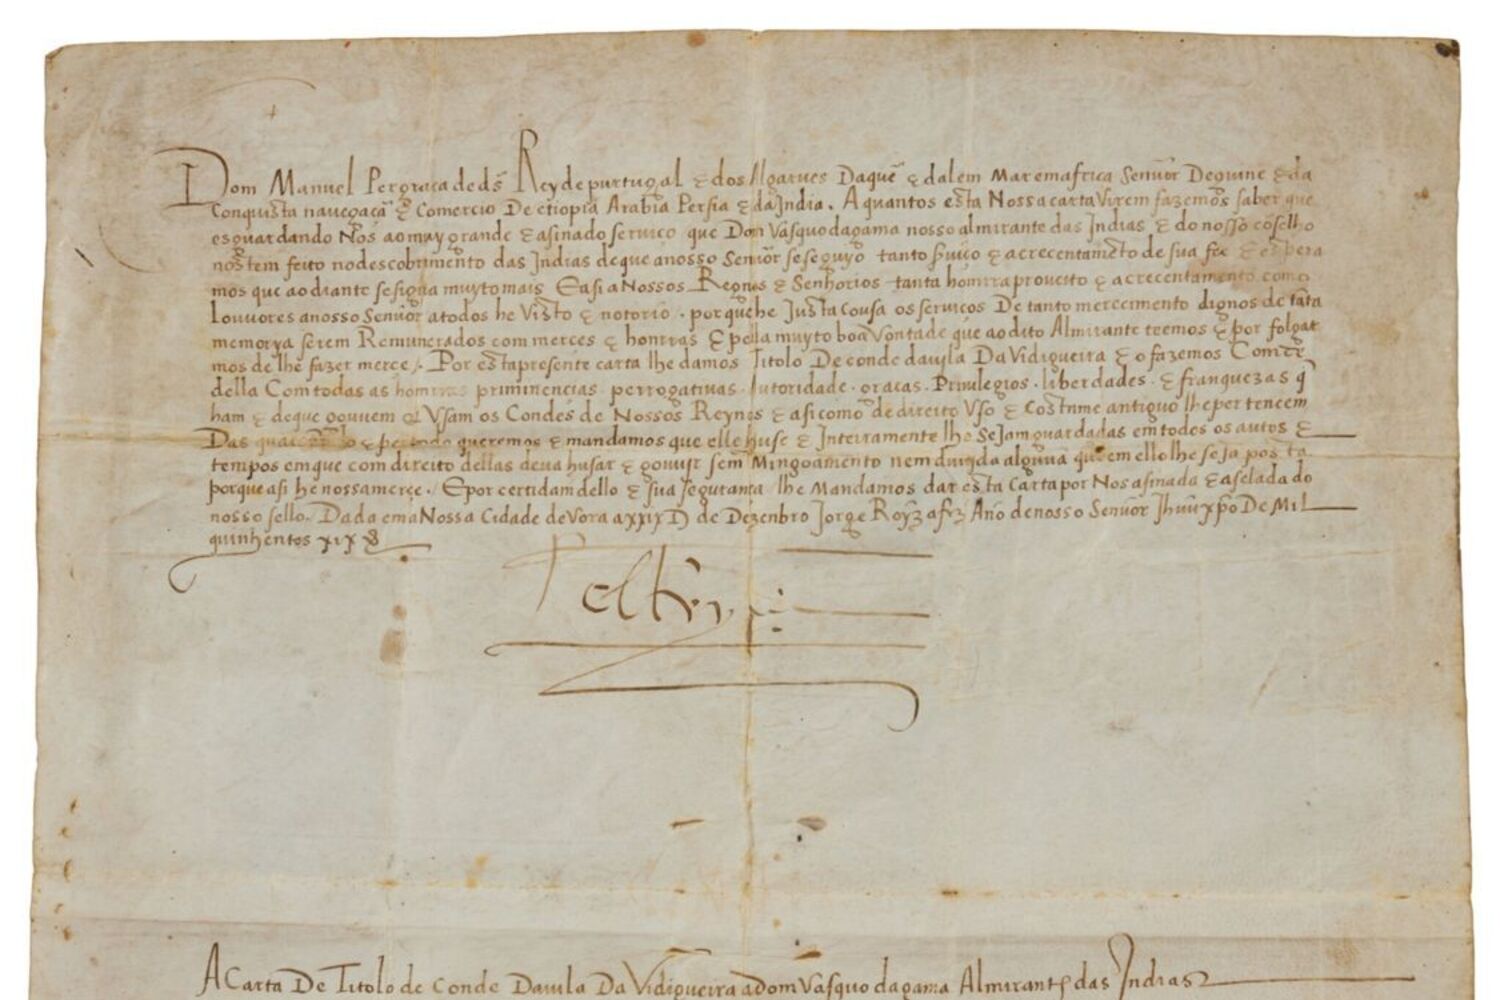 Dom Manuel Per graça de ds Rey de purtugal & dos Algarves Daquē & dalem Mar em africa Senuor De guine & da
Conquista navegaçã & Comercio De etiopia Arabia Persia & da India. A quantos esta Nossa carta Virem fazemos saber que
esguardando Nos ao muy grande & asinado serviço que Dom Vasquo da gama nosso almirante das Indias & do nosso cōselho
nos tem feito no descobrimento das Indias de que a nosso Senuor se seguyo tanto & acrecentamēto de sua fee & espera
mos que ao diante se sigua muyto mais E asi a Nossos Regnos & Senhorios tanta homrra proveito & acrecentamento como
louvores a nosso Senuor a todos he Visto & notorio. porque he Justa cousa os serviços De tanto merecimento dignos de tāta
memorya serem Remunerados com merces & honrras E pella muyto boa Vontade que ao dito Almirante teemos & por folgar
mos de lhe fazer merce /. Por esta presente carta lhe damos Titolo De conde da vyla Da Vidigueira & o fazemos Comde
della Com todas as homrras priminencias. perrogativas. Autoridade. graças. Privilegios. liberdades. & franquezas q̃
ham & de que gouvem & Usam os Condes de Nossos Reynos & asi como de direito Uso & Costume antiguo lhe pertencem
Das quaes queremos & mandamos que elle huse & Inteiramente lhe Sejam guardadas em todos os autos &
tempos em que com direito dellas deva husar & gouvir sem Mingoamento nem duvyda alguua que em ello lhe seja posta
porque asi he nossa merçe. / E por certidam dello & sua segurança lhe Mandamos dar esta Carta por Nos asinada & aselada do
nosso sello. Dada em a Nossa Cidade de Vora a xxix D de Dezenbro Jorge Royz a fez Ano de nosso Senuor Jhuu xpo De Mil
quinhentos xix
el Rey
A Carta De Titolo de Conde Da vila Da Vidigueira a dom Vasquo da gama Almirante das Indias